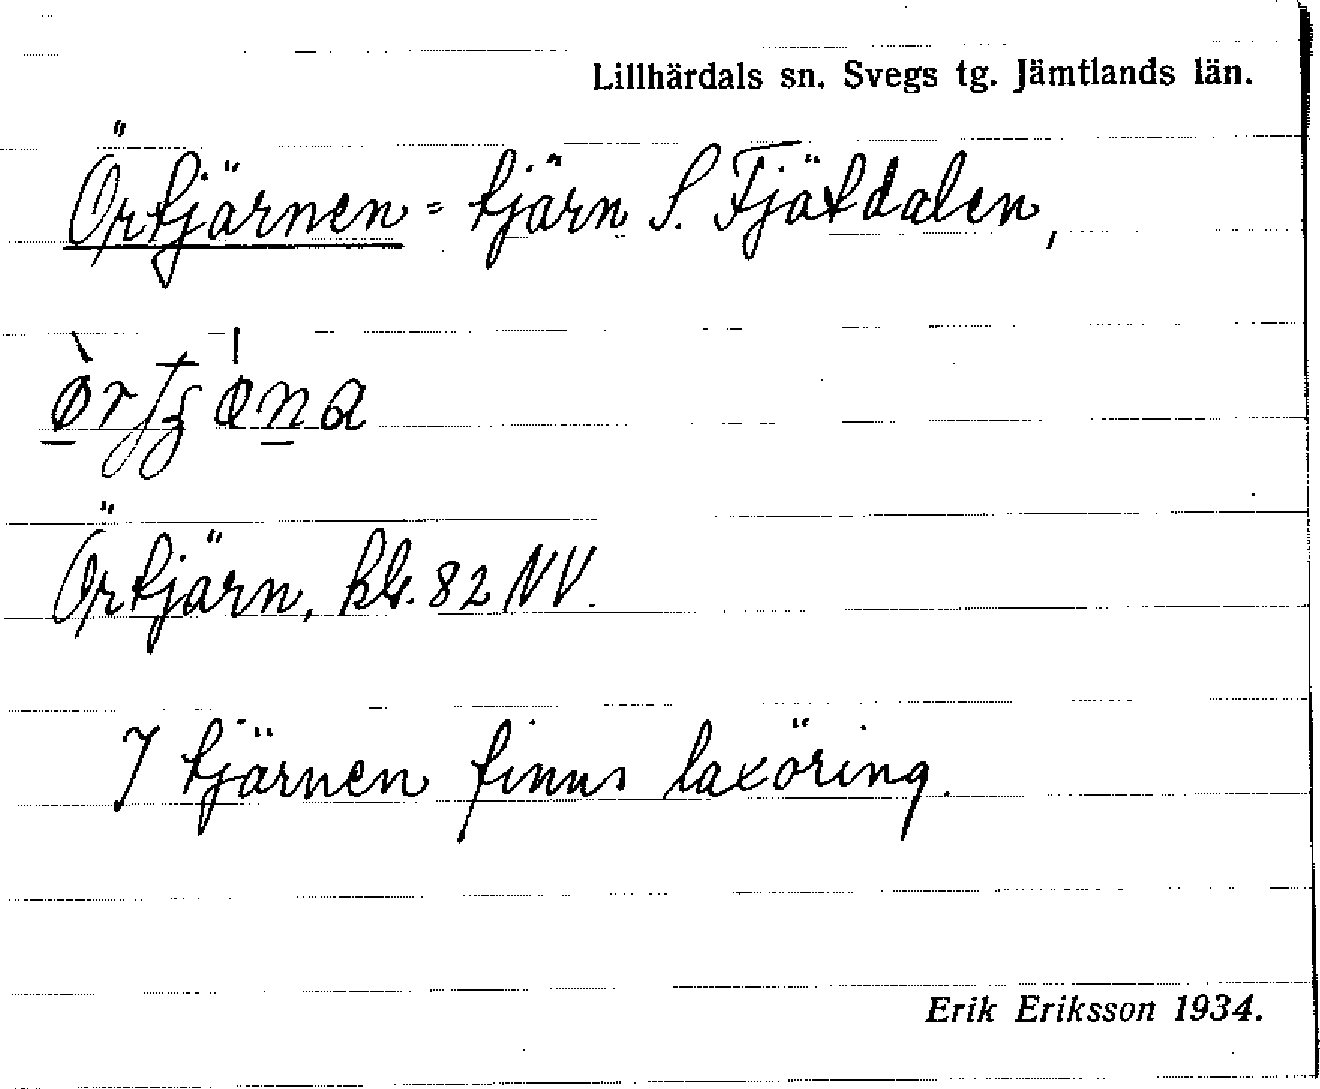 Lillhärdals sn. Svegs tg. Jämtlands län.
Örtjärnen = tjärn S. Fjätdalen,
Örtjärn, kbl. 82 NV.
I tjärnen finns laxöring.
Erik Eriksson 1934.